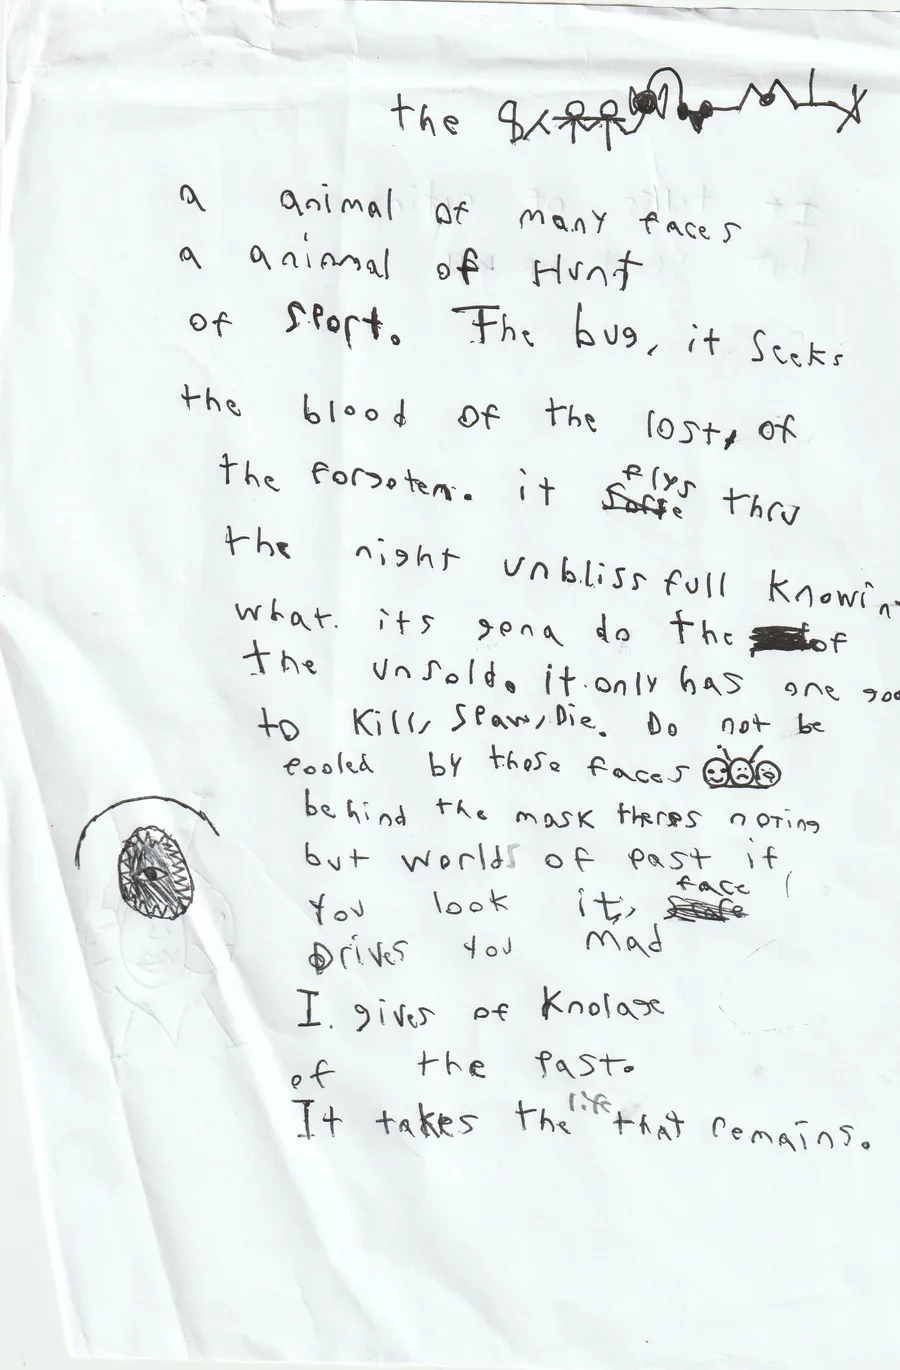 the
a animal of many faces
a animal of Hunt
of Sport. The bug, it seeks
the blood of the lost, of
the forgoten. it flys thru
the night unblissfull Knowin
what. its gona do the of
the unsold. it only has one goo
to Kill, Spawn, Die. Do not be
fooled by those faces
behind the mask theres noting
but worlds of past if
you look it, face
Drives you Mad
I. gives of Knolage
of the past.
It takes the life that remains.